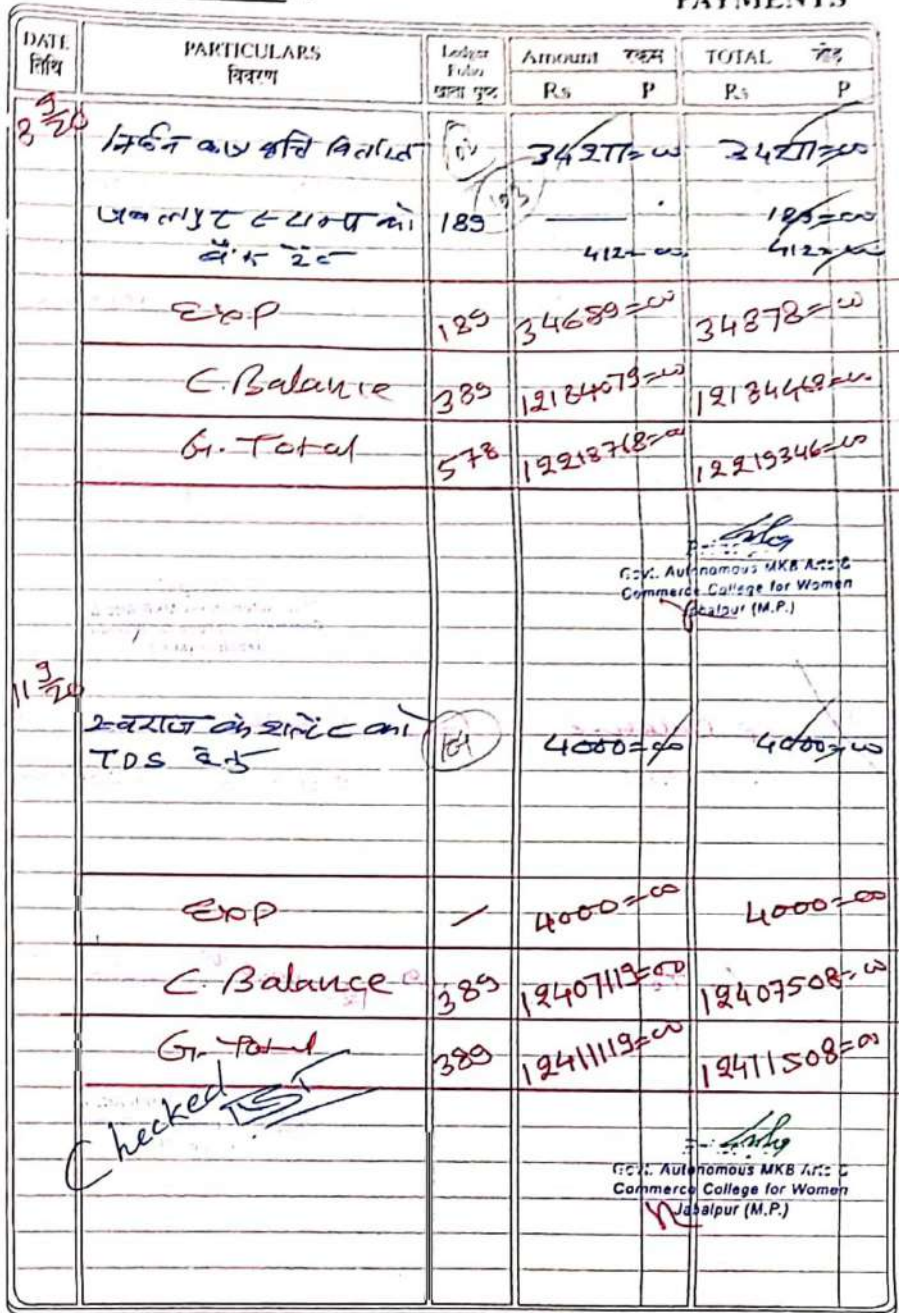 PAYMENTS
DATE तिथि PARTICULARS विवरण Ledger Folio खाता पृष्ठ Amount रकम Rs P TOTAL जोड़ Rs P
8 9/20
निर्धन छात्र वृत्ति 34277=00 34277=00
189 — 189=00
412=00 412=00
Exp 189 34689=00 34878=00
C. Balance 389 12184079=00 12184468=00
G. Total 578 12218768=00 12219346=00
Govt. Autonomous MKB Arts &
Commerce College for Women
Jabalpur (M.P.)
11 9/20
को 4000=00 4000=00
TDS
Exp / 4000=00 4000=00
C. Balance 389 12407119=00 12407508=00
G. Total 389 12411119=00 12411508=00
Checked
Govt. Autonomous MKB Arts &
Commerce College for Women
Jabalpur (M.P.)